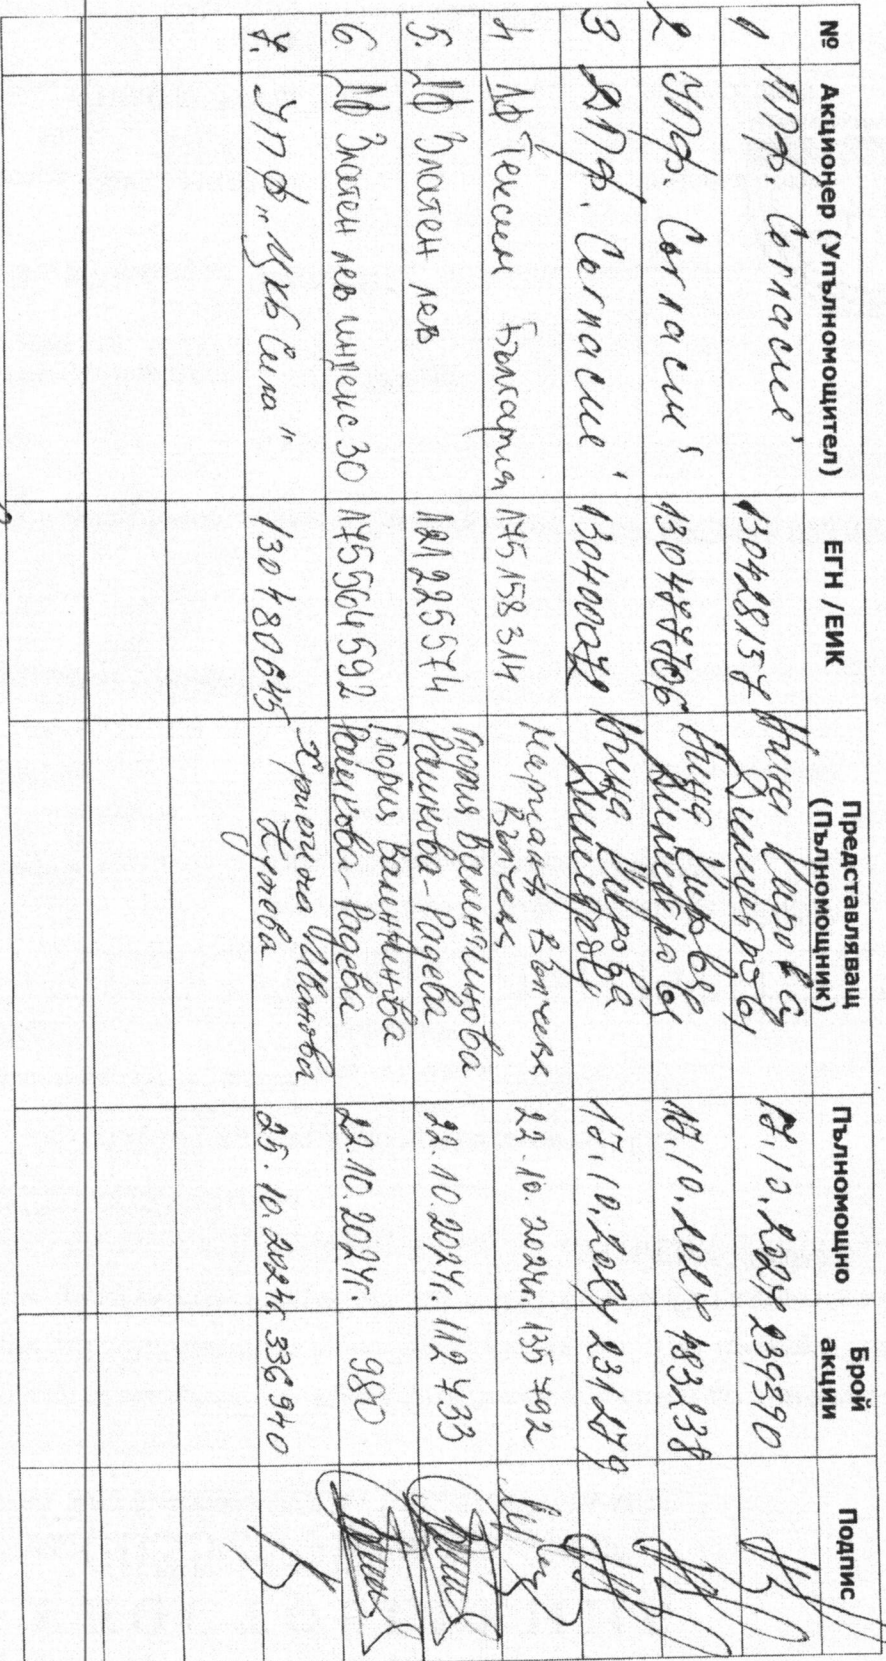 № Акционер (Упълномощител) ЕГН /ЕИК Представляващ (Пълномощник) Пълномощно Брой акции Подпис
1 ППФ. Съгласие' 130428157 Нина Кирова Димитрова 17.10.2024 239390
2 УПФ. Съгласи' 130477706 Нина Кирова Димитрова 17.10.2024 483238
3 ДПФ. Съгласие' 130400072 Нина Кирова Димитрова 17.10.2024 231279
4 ДФ Тексим България 175158314 22.10.2024г. 135792
5. ДФ Златен лев 121225574 Глория Валентинова Райкова-Радева 22.10.2024г. 112433
6 ДФ Златен лев индекс 30 175564592 Глория Валентинова Райкова-Радева 22.10.2024г. 980
7. УПФ „ЦКБ Сила" 130480645 Християна Иванова Кунева 25.10.2024г. 336940